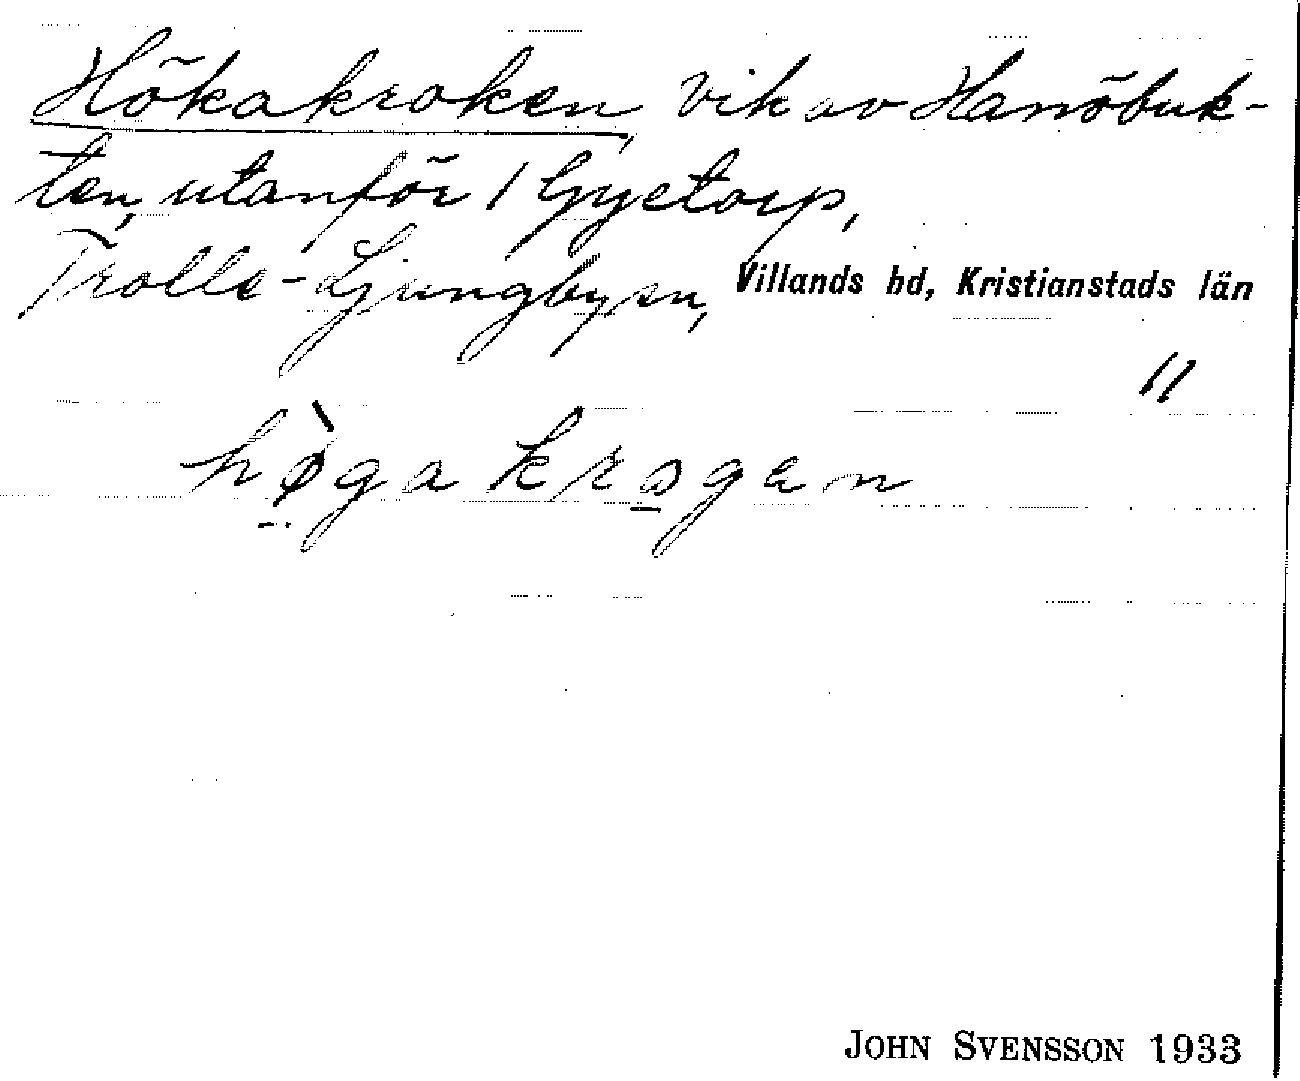 Hökakroken, vik av Hanöbuk-
ten, utanför 1 Gyetorp,
Trolle-Ljungby sn, Villands hd, Kristianstads län
11
hø̀gakrogen
JOHN SVENSSON 1933